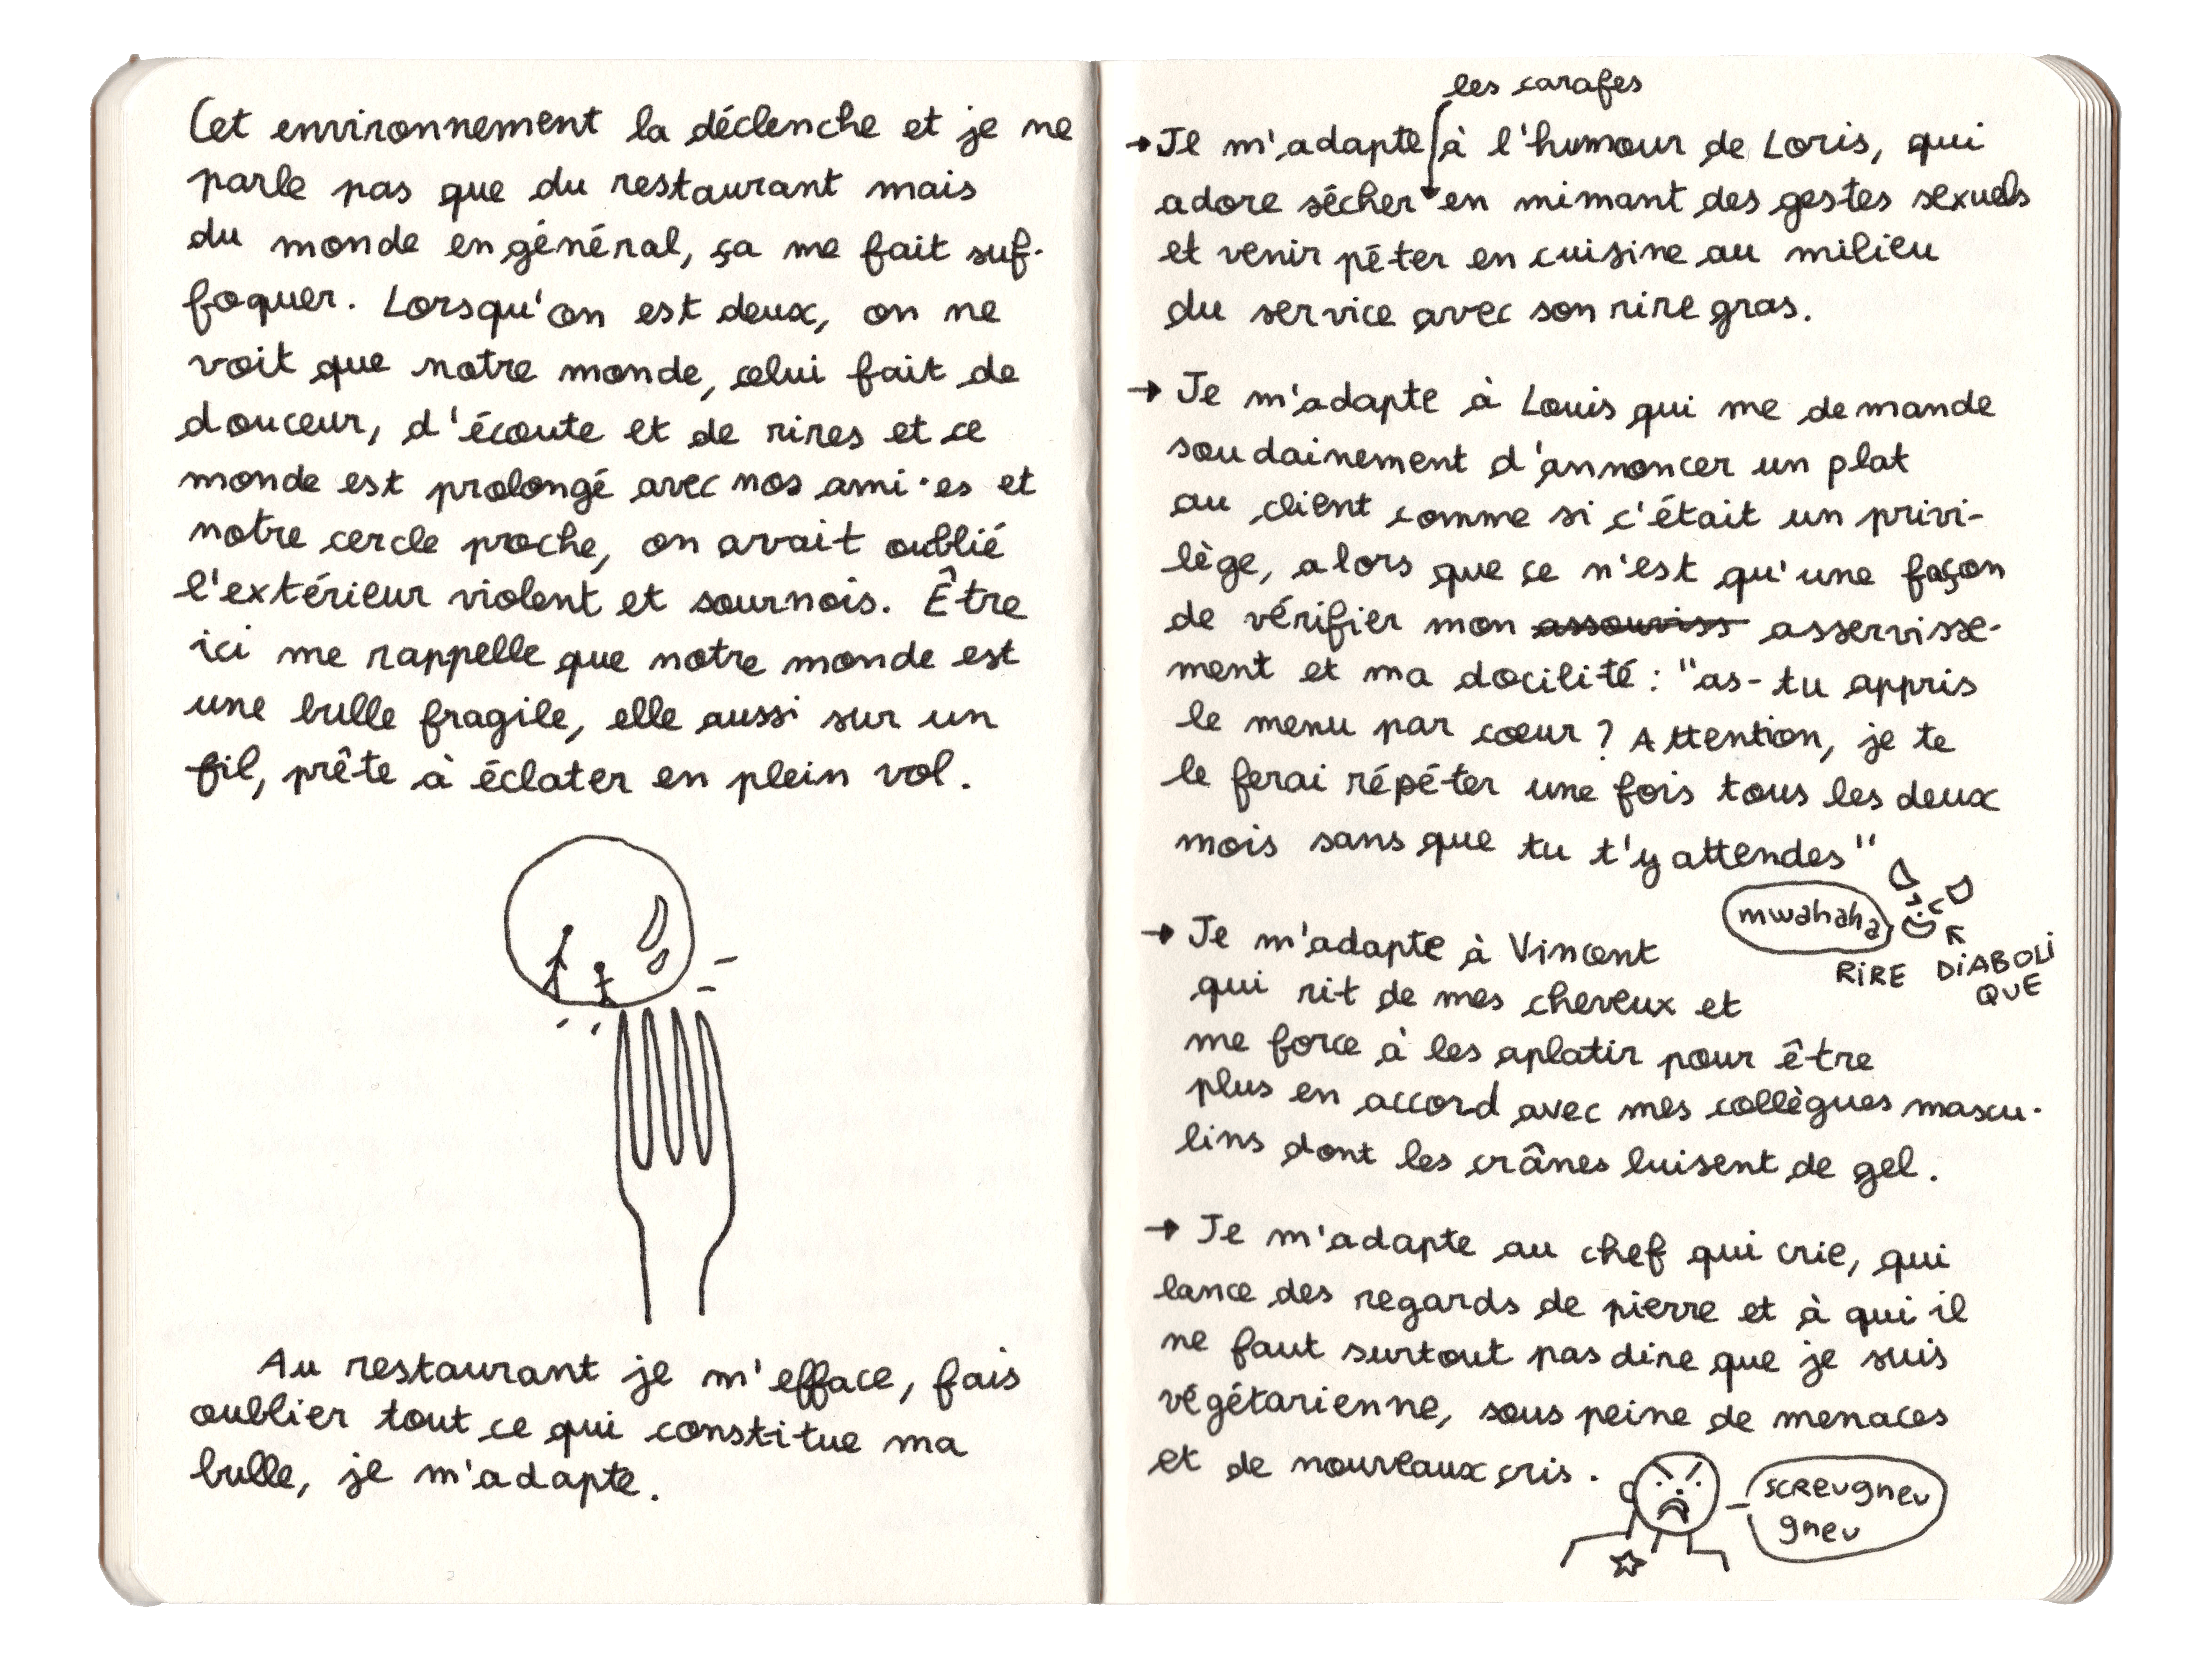 Cet environnement la déclenche et je ne
parle pas que du restaurant mais
du monde en général, ça me fait suf-
foquer. Lorsqu'on est deux, on ne
voit que notre monde, celui fait de
douceur, d'écoute et de rires et ce
monde est prolongé avec nos ami·es et
notre cercle proche, on avait oublié
l'extérieur violent et sournois. Être
ici me rappelle que notre monde est
une bulle fragile, elle aussi sur un
fil, prête à éclater en plein vol.
Au restaurant je m'efface, fais
oublier tout ce qui constitue ma
bulle, je m'adapte.
les carafes
→ Je m'adapte à l'humour de Loris, qui
adore sécher en mimant des gestes sexuels
et venir péter en cuisine au milieu
du service avec son rire gras.
→ Je m'adapte à Louis qui me demande
soudainement d'annoncer un plat
au client comme si c'était un privi-
lège, alors que ce n'est qu'une façon
de vérifier mon assouviss asservisse-
ment et ma docilité : "as-tu appris
le menu par cœur ? Attention, je te
le ferai répéter une fois tous les deux
mois sans que tu t'y attendes"
mwahaha
RIRE DIABOLI
QUE
→ Je m'adapte à Vincent
qui rit de mes cheveux et
me force à les aplatir pour être
plus en accord avec mes collègues mascu-
lins dont les crânes luisent de gel.
→ Je m'adapte au chef qui crie, qui
lance des regards de pierre et à qui il
ne faut surtout pas dire que je suis
végétarienne, sous peine de menaces
et de nouveaux cris.
screugneu
gneu